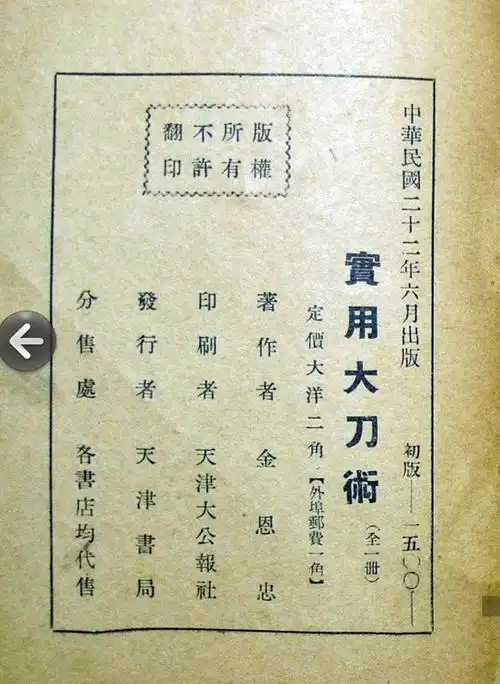 中華民國二十二年六月出版
初版——一五〇〇——
實用大刀術
(全一冊)
定價大洋二角
【外埠郵費一角】
著作者 金恩忠
印刷者 天津大公報社
發行者 天津書局
分售處 各書店均代售
版權
所有
不許
翻印